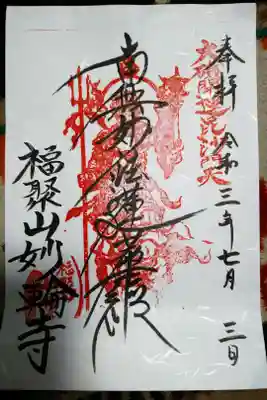 奉拝 令和三年七月三日
大福開運毘沙門天
南無妙法蓮華経
福聚山妙輪寺